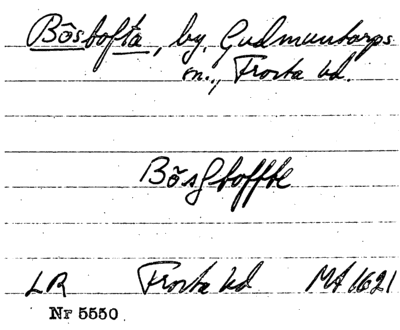 Bösbofta, by, Gudmuntorps
sn., Frosta hd.
Bössboffte
LR Frosta hd MA 1621
Nr 5550